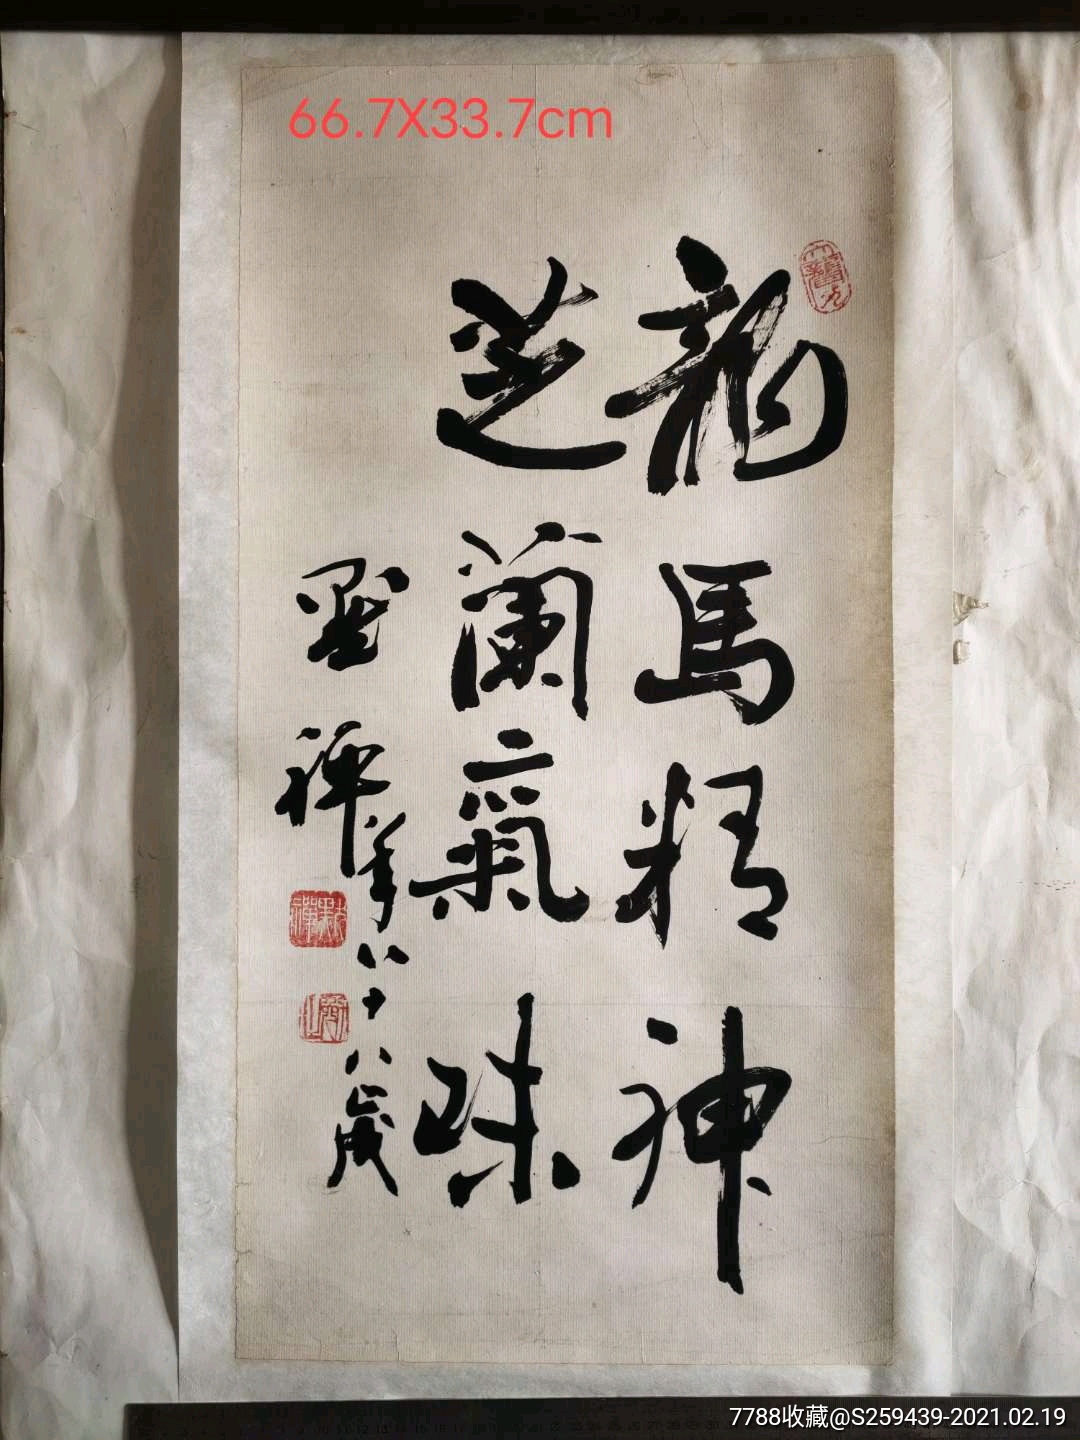 66.7X33.7cm
龍馬精神
芝蘭氣味
默禪年八十八歲
7788收藏@S259439-2021.02.19